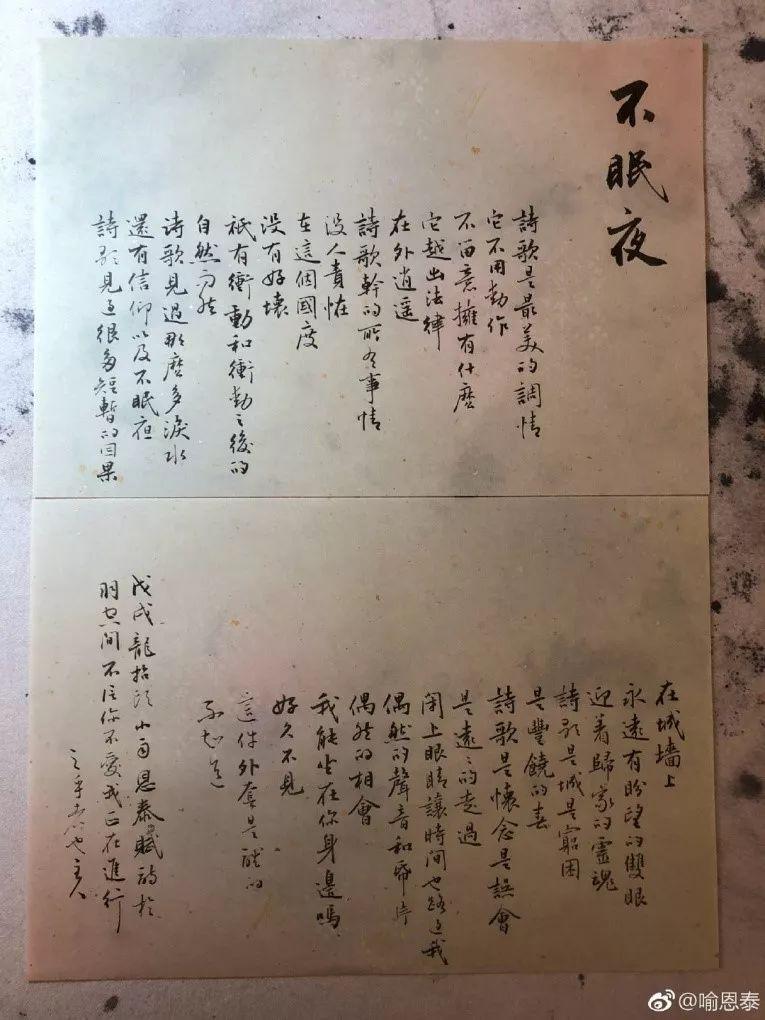 不眠夜
詩歌是最美的調情
它不用動作
不留意擁有什麽
它越出法律
在外逍遥
詩歌幹的所有事情
没人責怪
在這個國度
没有好壞
祇有衝動和衝動之後的
自然而然
诗歌見過那麽多淚水
還有信仰以及不眠夜
詩歌見過很多短暫的因果
在城墻上
永遠有盼望的雙眼
迎着歸家的靈魂
詩歌是城是窮困
是豐饒的春
詩歌是懷念是誤會
是遠遠的走過
闭上眼睛讓時間也路過我
偶然的聲音和
偶然的相會
我能坐在你身邊嗎
好久不見
這件外套是酸的
不知道
戊戌龍抬頭小雨恩泰賦詩於
不住你不愛我正在進行
主人
@喻恩泰